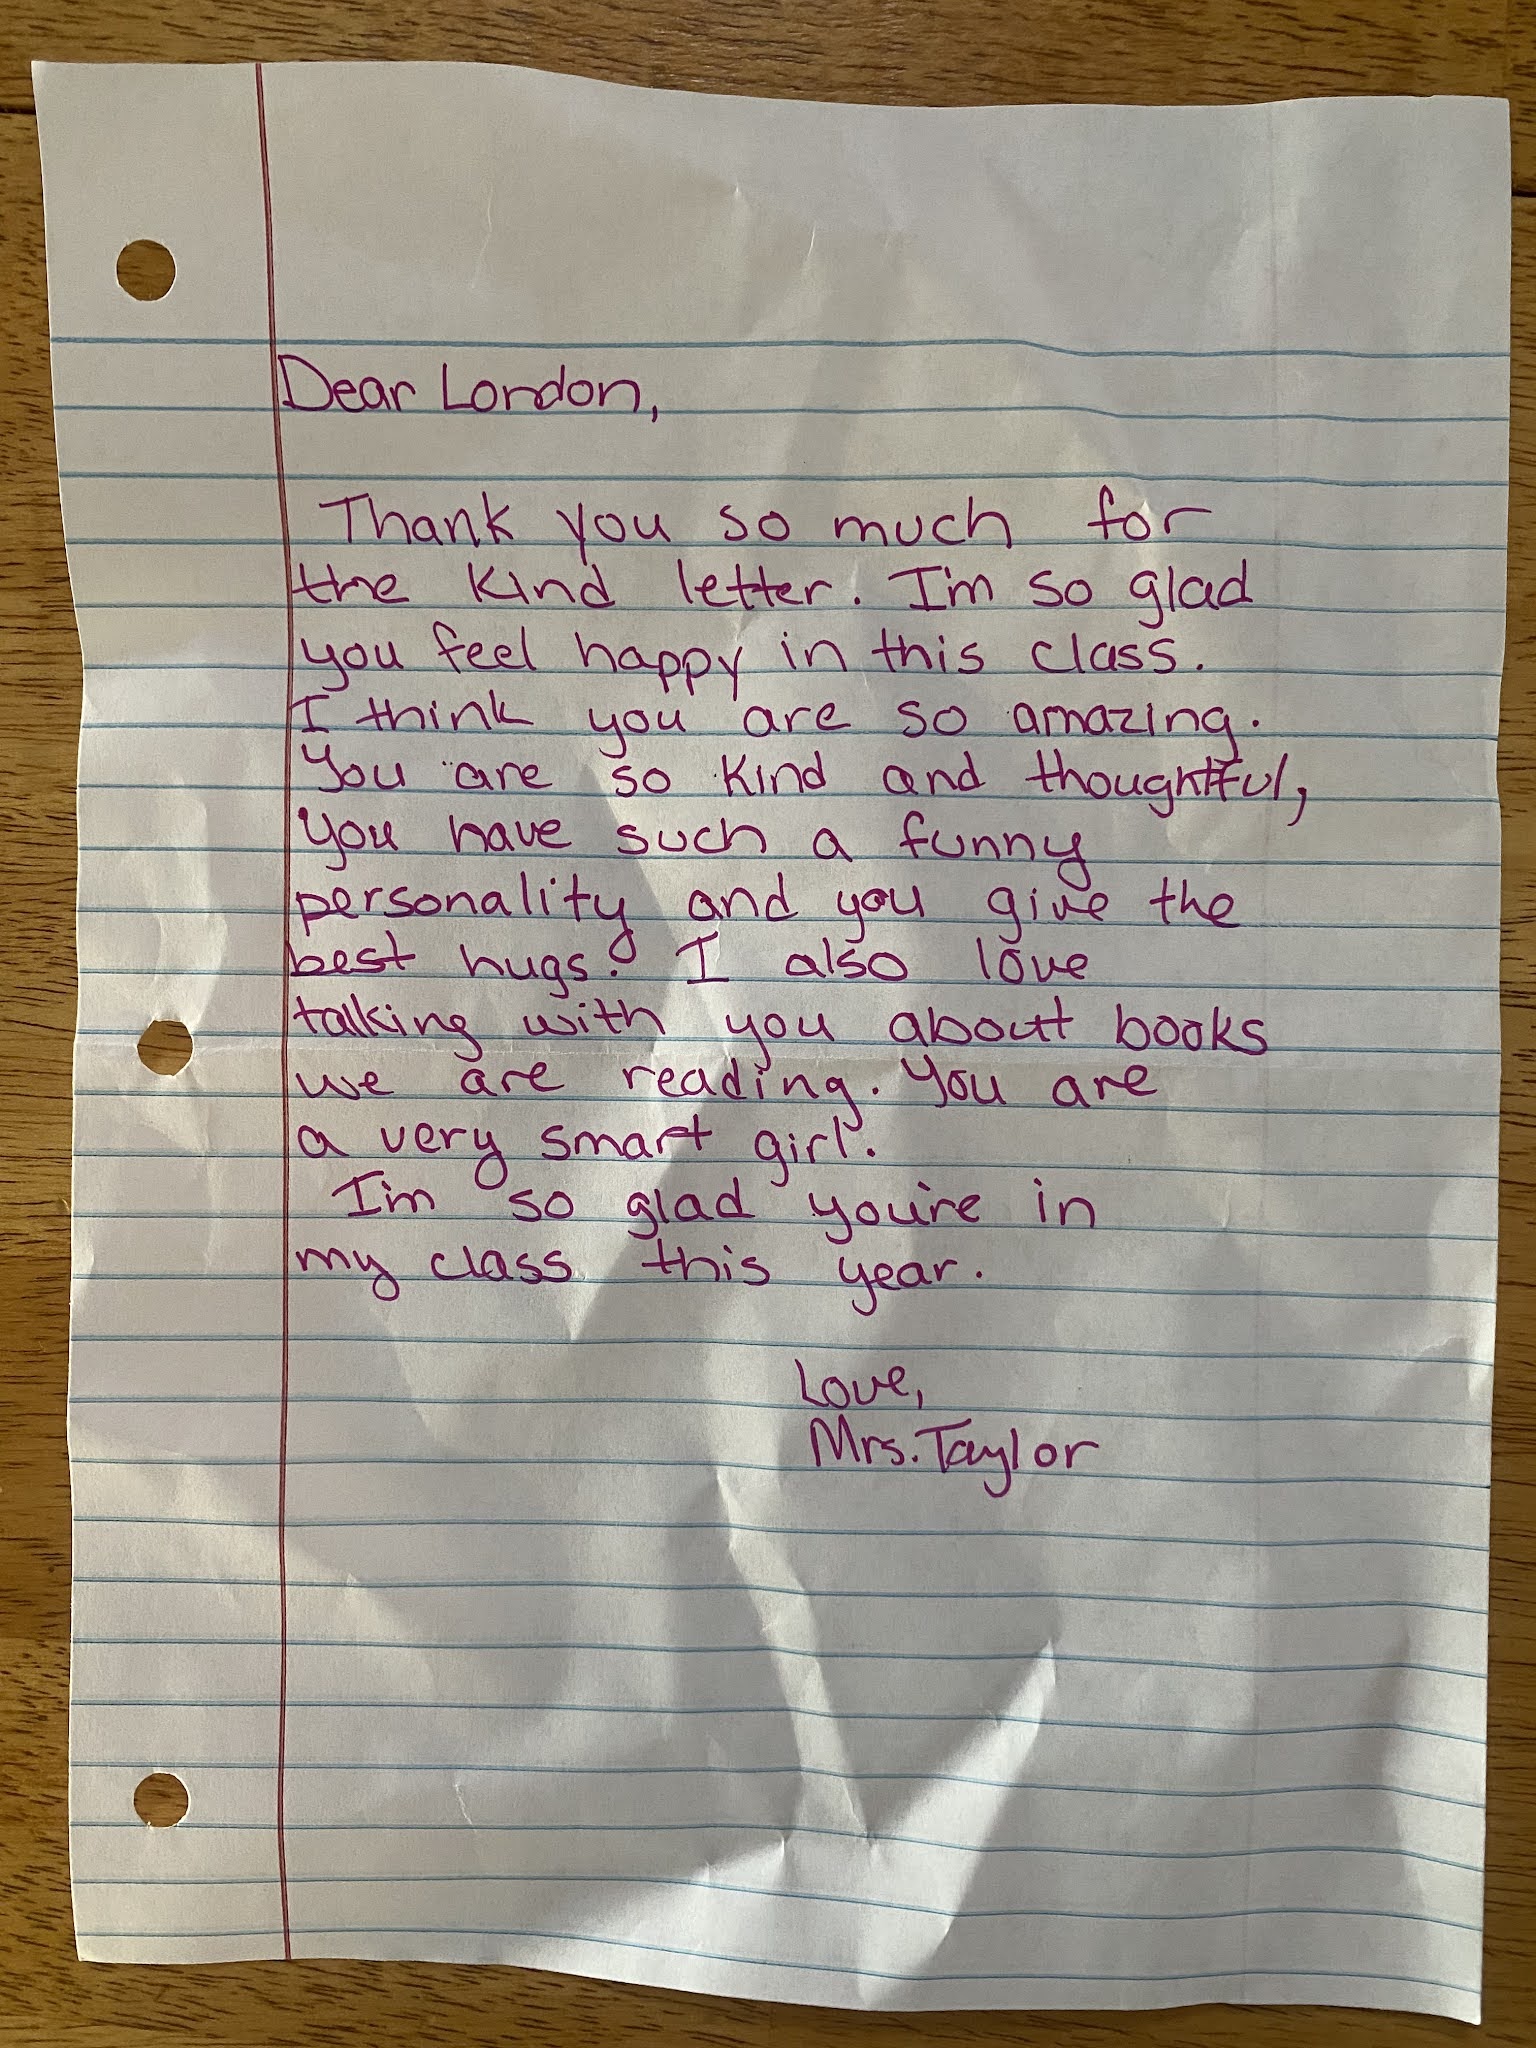 Dear London,
Thank you so much for
the kind letter. I'm so glad
you feel happy in this class.
I think you are so amazing.
You are so kind and thoughtful,
you have such a funny
personality and you give the
best hugs. I also love
talking with you about books
we are reading. You are
a very smart girl.
I'm so glad you're in
my class this year.
Love,
Mrs. Taylor